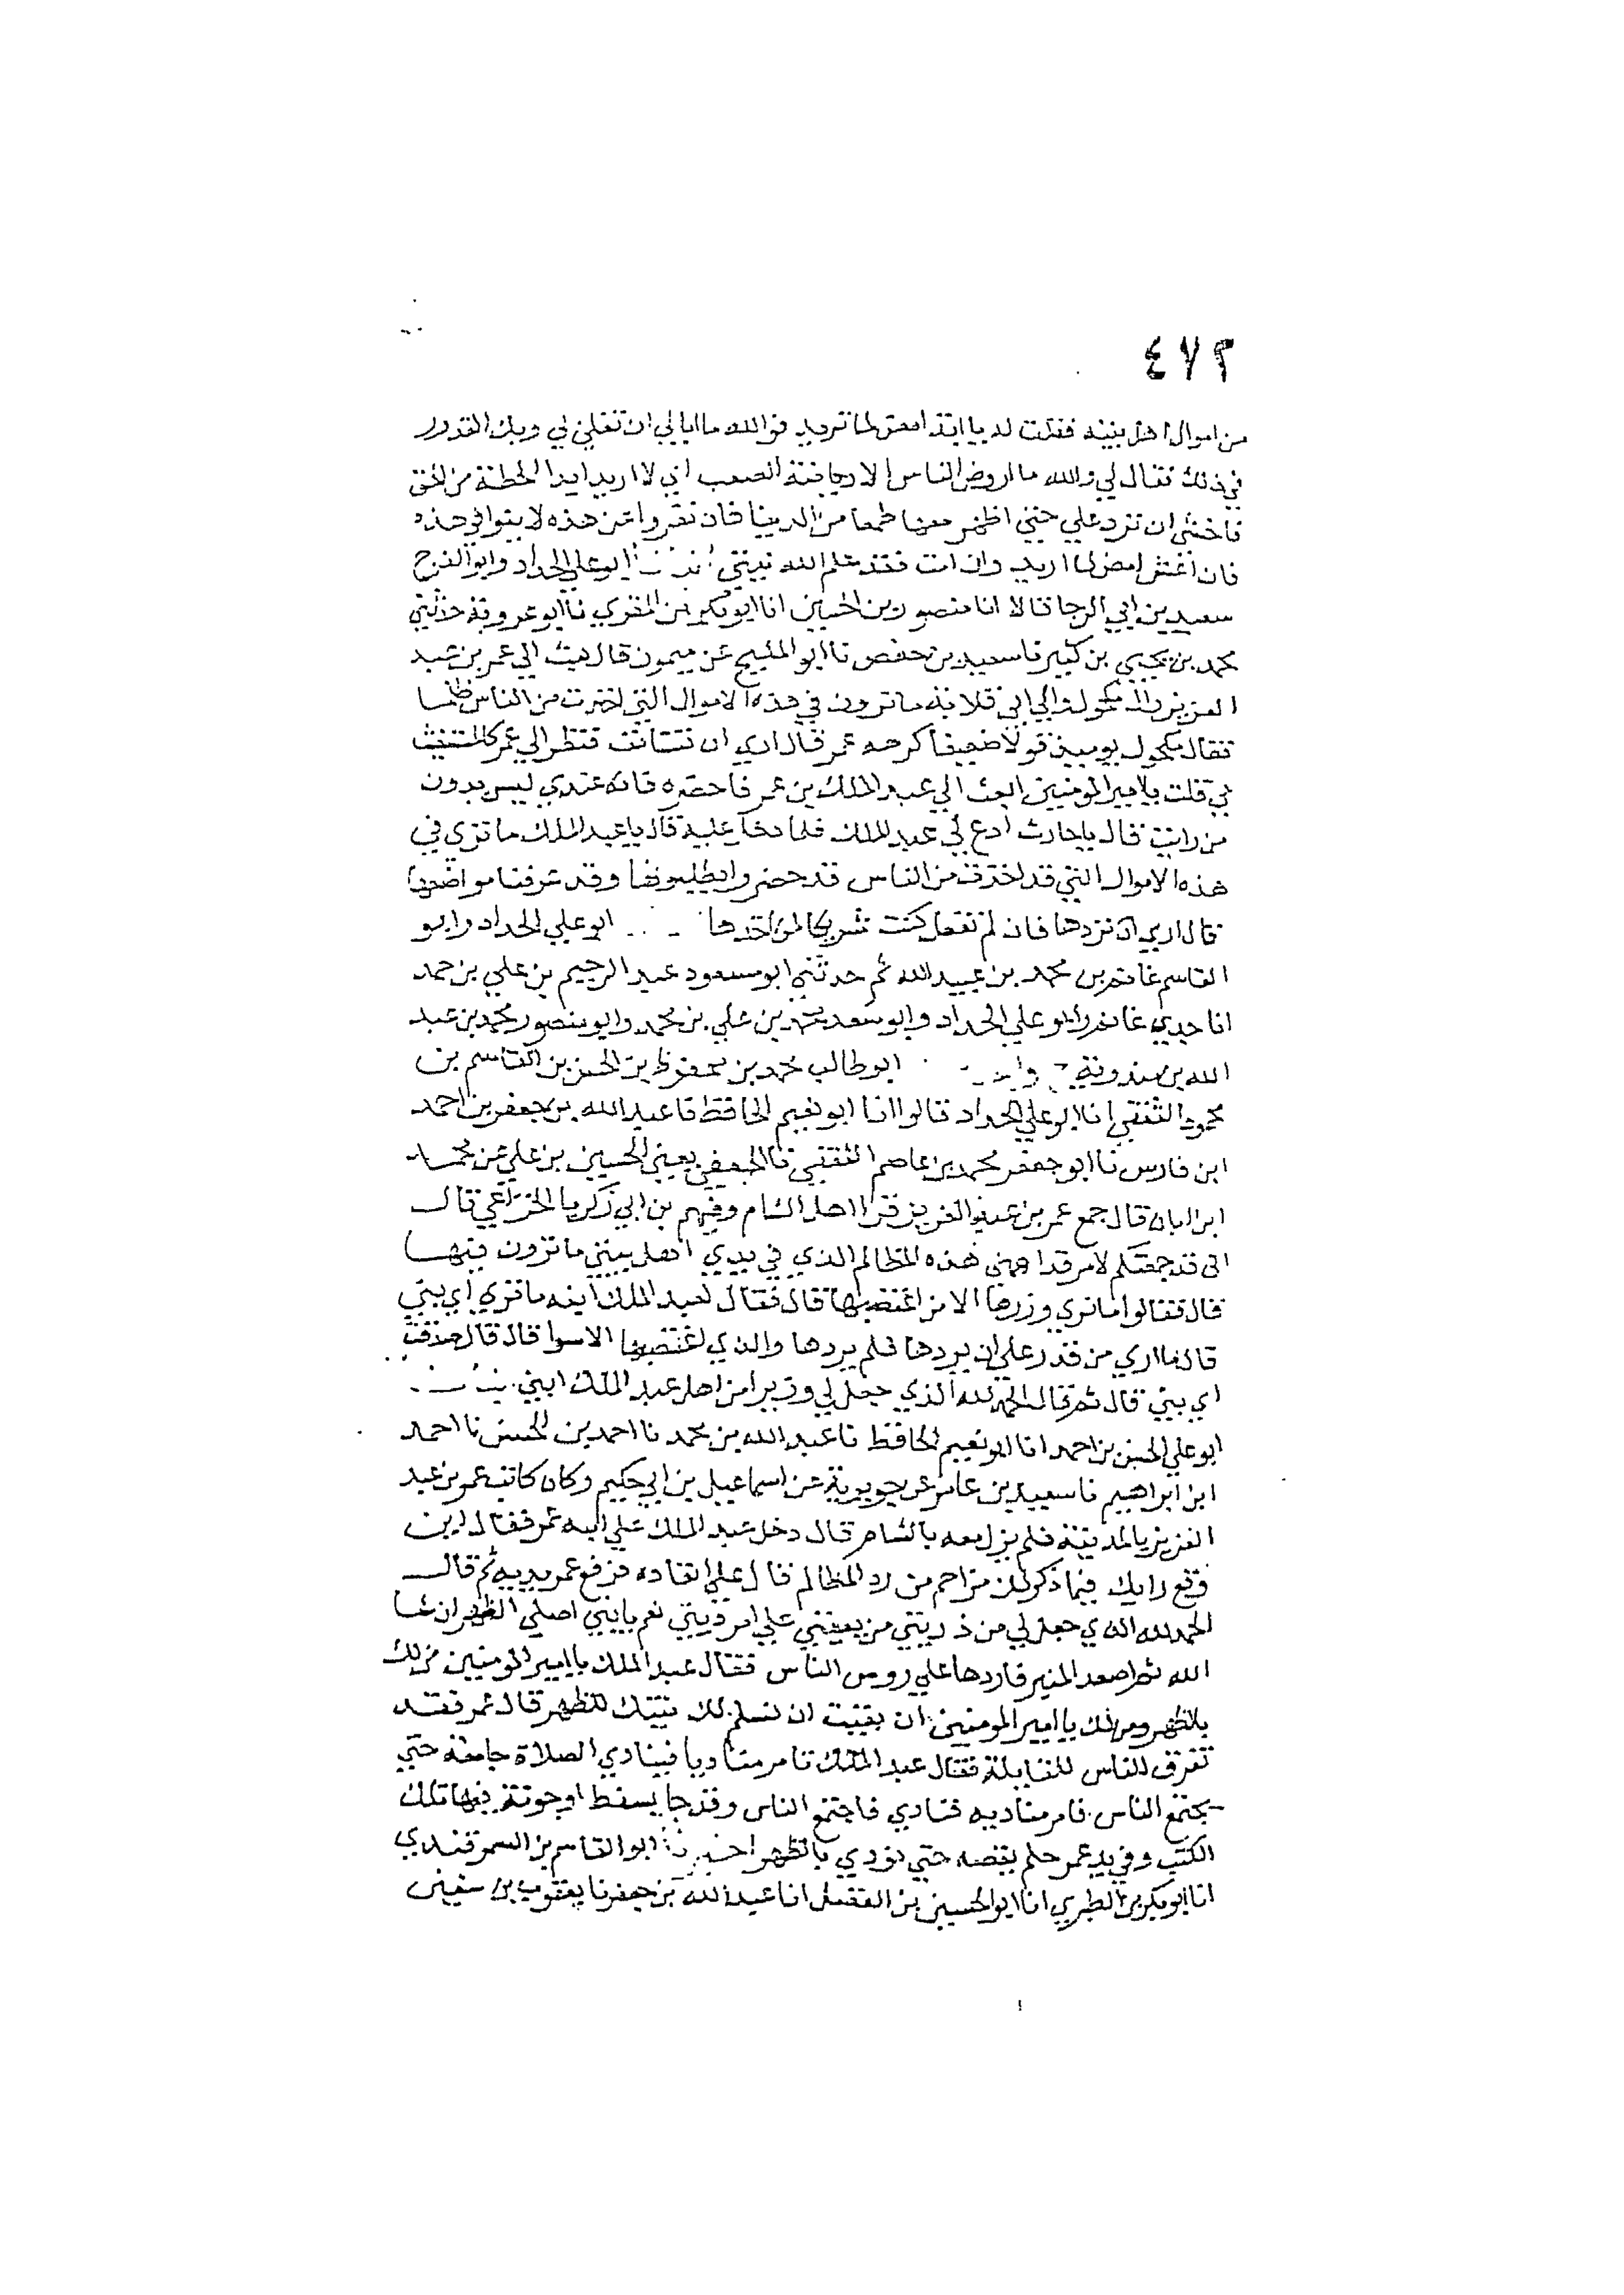 ٤٧٢
من اموال اهل بيته فقلت له يا ابة امض لما تريد فوالله ما ابالي ان تغلي بي وبك القدور
في ذلك فقال لي والله ما اروض الناس الا رياضة الصعب اني لا اريد ابدا الخطة من الحق
فاخشى ان ترد علي حتى اظهر معها طمعا من الدنيا فان نفروا عن هذه لا ينوا في هذه
فان اعش امض لما اريد وان امت فقد علم الله نيتي ابو علي الحداد وابو الفرج
سعيد بن ابي الرجا قالا انا منصور بن الحسين انا ابو بكر بن المقري نا ابو عروبة حدثني
محمد بن يحيى بن كثير نا سعيد بن حفص نا ابو المليح عن ميمون قال بعث الي عمر بن عبد
العزيز والى مكحول والى ابي قلابة ما ترون في هذه الاموال التي اخذت من الناس ظلما
فقال مكحول يوميذ قولا ضعيفا كرهه عمر قال ارى ان تستانف فنظر الي عمر كالمستغيث
بي قلت يا امير المومنين ابعث الي عبد الملك بن عمر فاحضره فانه عندي ليس بدون
من رايت قال يا حارث ادع لي عبد الملك فلما دخل عليه قال يا عبد الملك ما ترى في
هذه الاموال التي قد اخذت من الناس قد حضروا يطلبونها وقد عرفنا مواضعها
قال ارى ان تردها فان لم تفعل كنت شريكا لمن اخذها ابو علي الحداد وابو
القاسم غانم بن محمد بن عبيد الله ثم حدثني ابو مسعود عبد الرحيم بن علي بن حمد
انا جدي غانم وابو علي الحداد وابو سعد محمد بن علي بن محمد وابو منصور محمد بن عبد
الله بن مندويه ابو طالب محمد بن محفوظ بن الحسن بن القاسم بن
محمود الثقفي انا ابو علي الحداد قالوا انا ابو نعيم الحافظ نا عبد الله بن جعفر بن احمد
ابن فارس نا ابو جعفر محمد بن عاصم الثقفي نا الجعفي يعني الحسين بن علي عن محمد
ابن ابان قال جمع عمر بن عبد العزيز قرا اهل الشام وفيهم بن ابي زكريا الخزاعي قال
اني قد جمعتكم لامر قد اهمني هذه المظالم الذي في يدي اهل بيتي ما ترون فيها
قال فقالوا ما نرى وزرها الا من اغتصبها قال فقال لعبد الملك ابنه ما ترى اي بني
قال ما ارى من قدر على ان يردها فلم يردها والذي اغتصبها الا سوا قال قال صدقت
اي بني قال ثم قال الحمد لله الذي جعل لي وزيرا من اهل عبد الملك ابني
ابو علي الحسن بن احمد انا ابو نعيم الحافظ نا عبد الله بن محمد نا احمد بن الحسن نا احمد
ابن ابراهيم نا سعيد بن عامر عن جويرية عن اسماعيل بن ابي حكيم وكان كاتب عمر بن عبد
العزيز بالمدينة فلم يزل معه بالشام قال دخل عبد الملك على ابيه عمر فقال اين
وقع رايك فيما ذكر لك مزاحم من رد المظالم قال علي انفاذه فرفع عمر يديه ثم قال
الحمد لله الذي جعل لي من ذريتي من يعينني على امر ديني نعم يا بني اصلي الظهر ان شا
الله ثم اصعد المنبر فاردها على روس الناس فقال عبد الملك يا امير المومنين من لك
بالظهر ومن لك يا امير المومنين ان بقيت ان تسلم لك نيتك للظهر قال عمر فقد
تفرق الناس للقايلة فقال عبد الملك تامر مناديا فينادي الصلاة جامعة حتى
يجتمع الناس فامر مناديه فنادى فاجتمع الناس وقد جا بسفط او جونة فيها تلك
الكتب وفي يد عمر جلم يقصه حتى نودي بالظهر ابو القاسم بن السمرقندي
انا ابو بكر بن الطبري انا ابو الحسين بن الفضل انا عبد الله بن جعفر نا يعقوب بن سفين